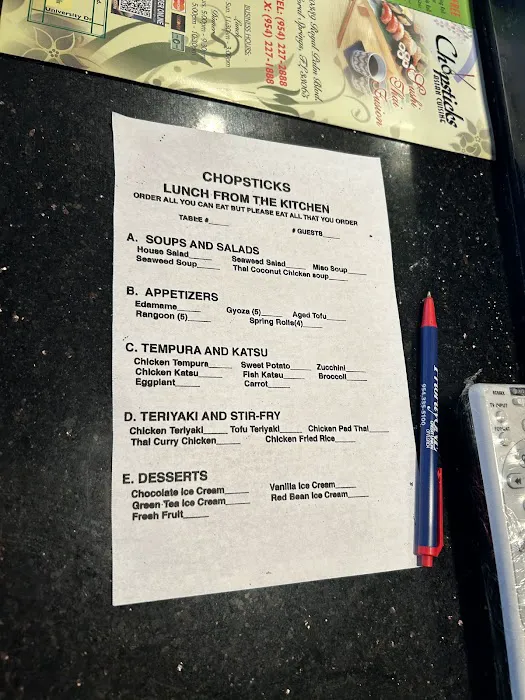 University Dr
BUSINESS HOURS:
TEL: (954) 227-2888
X: (954) 227-1888
Royal Palm Blvd.
Chopsticks
ASIAN CUISINE
Sushi
Thai
Fusion
CHOPSTICKS
LUNCH FROM THE KITCHEN
ORDER ALL YOU CAN EAT BUT PLEASE EAT ALL THAT YOU ORDER
TABLE #____ # GUESTS____
A. SOUPS AND SALADS
House Salad____ Seaweed Salad____ Miso Soup____
Seaweed Soup____ Thai Coconut Chicken soup____
B. APPETIZERS
Edamame____ Gyoza (5)____ Aged Tofu____
Rangoon (5)____ Spring Rolls(4)____
C. TEMPURA AND KATSU
Chicken Tempura____ Sweet Potato____ Zucchini____
Chicken Katsu____ Fish Katsu____ Broccoli____
Eggplant____ Carrot____
D. TERIYAKI AND STIR-FRY
Chicken Teriyaki____ Tofu Teriyaki____ Chicken Pad Thai____
Thai Curry Chicken____ Chicken Fried Rice____
E. DESSERTS
Chocolate Ice Cream____ Vanilla Ice Cream____
Green Tea Ice Cream____ Red Bean Ice Cream____
Fresh Fruit____